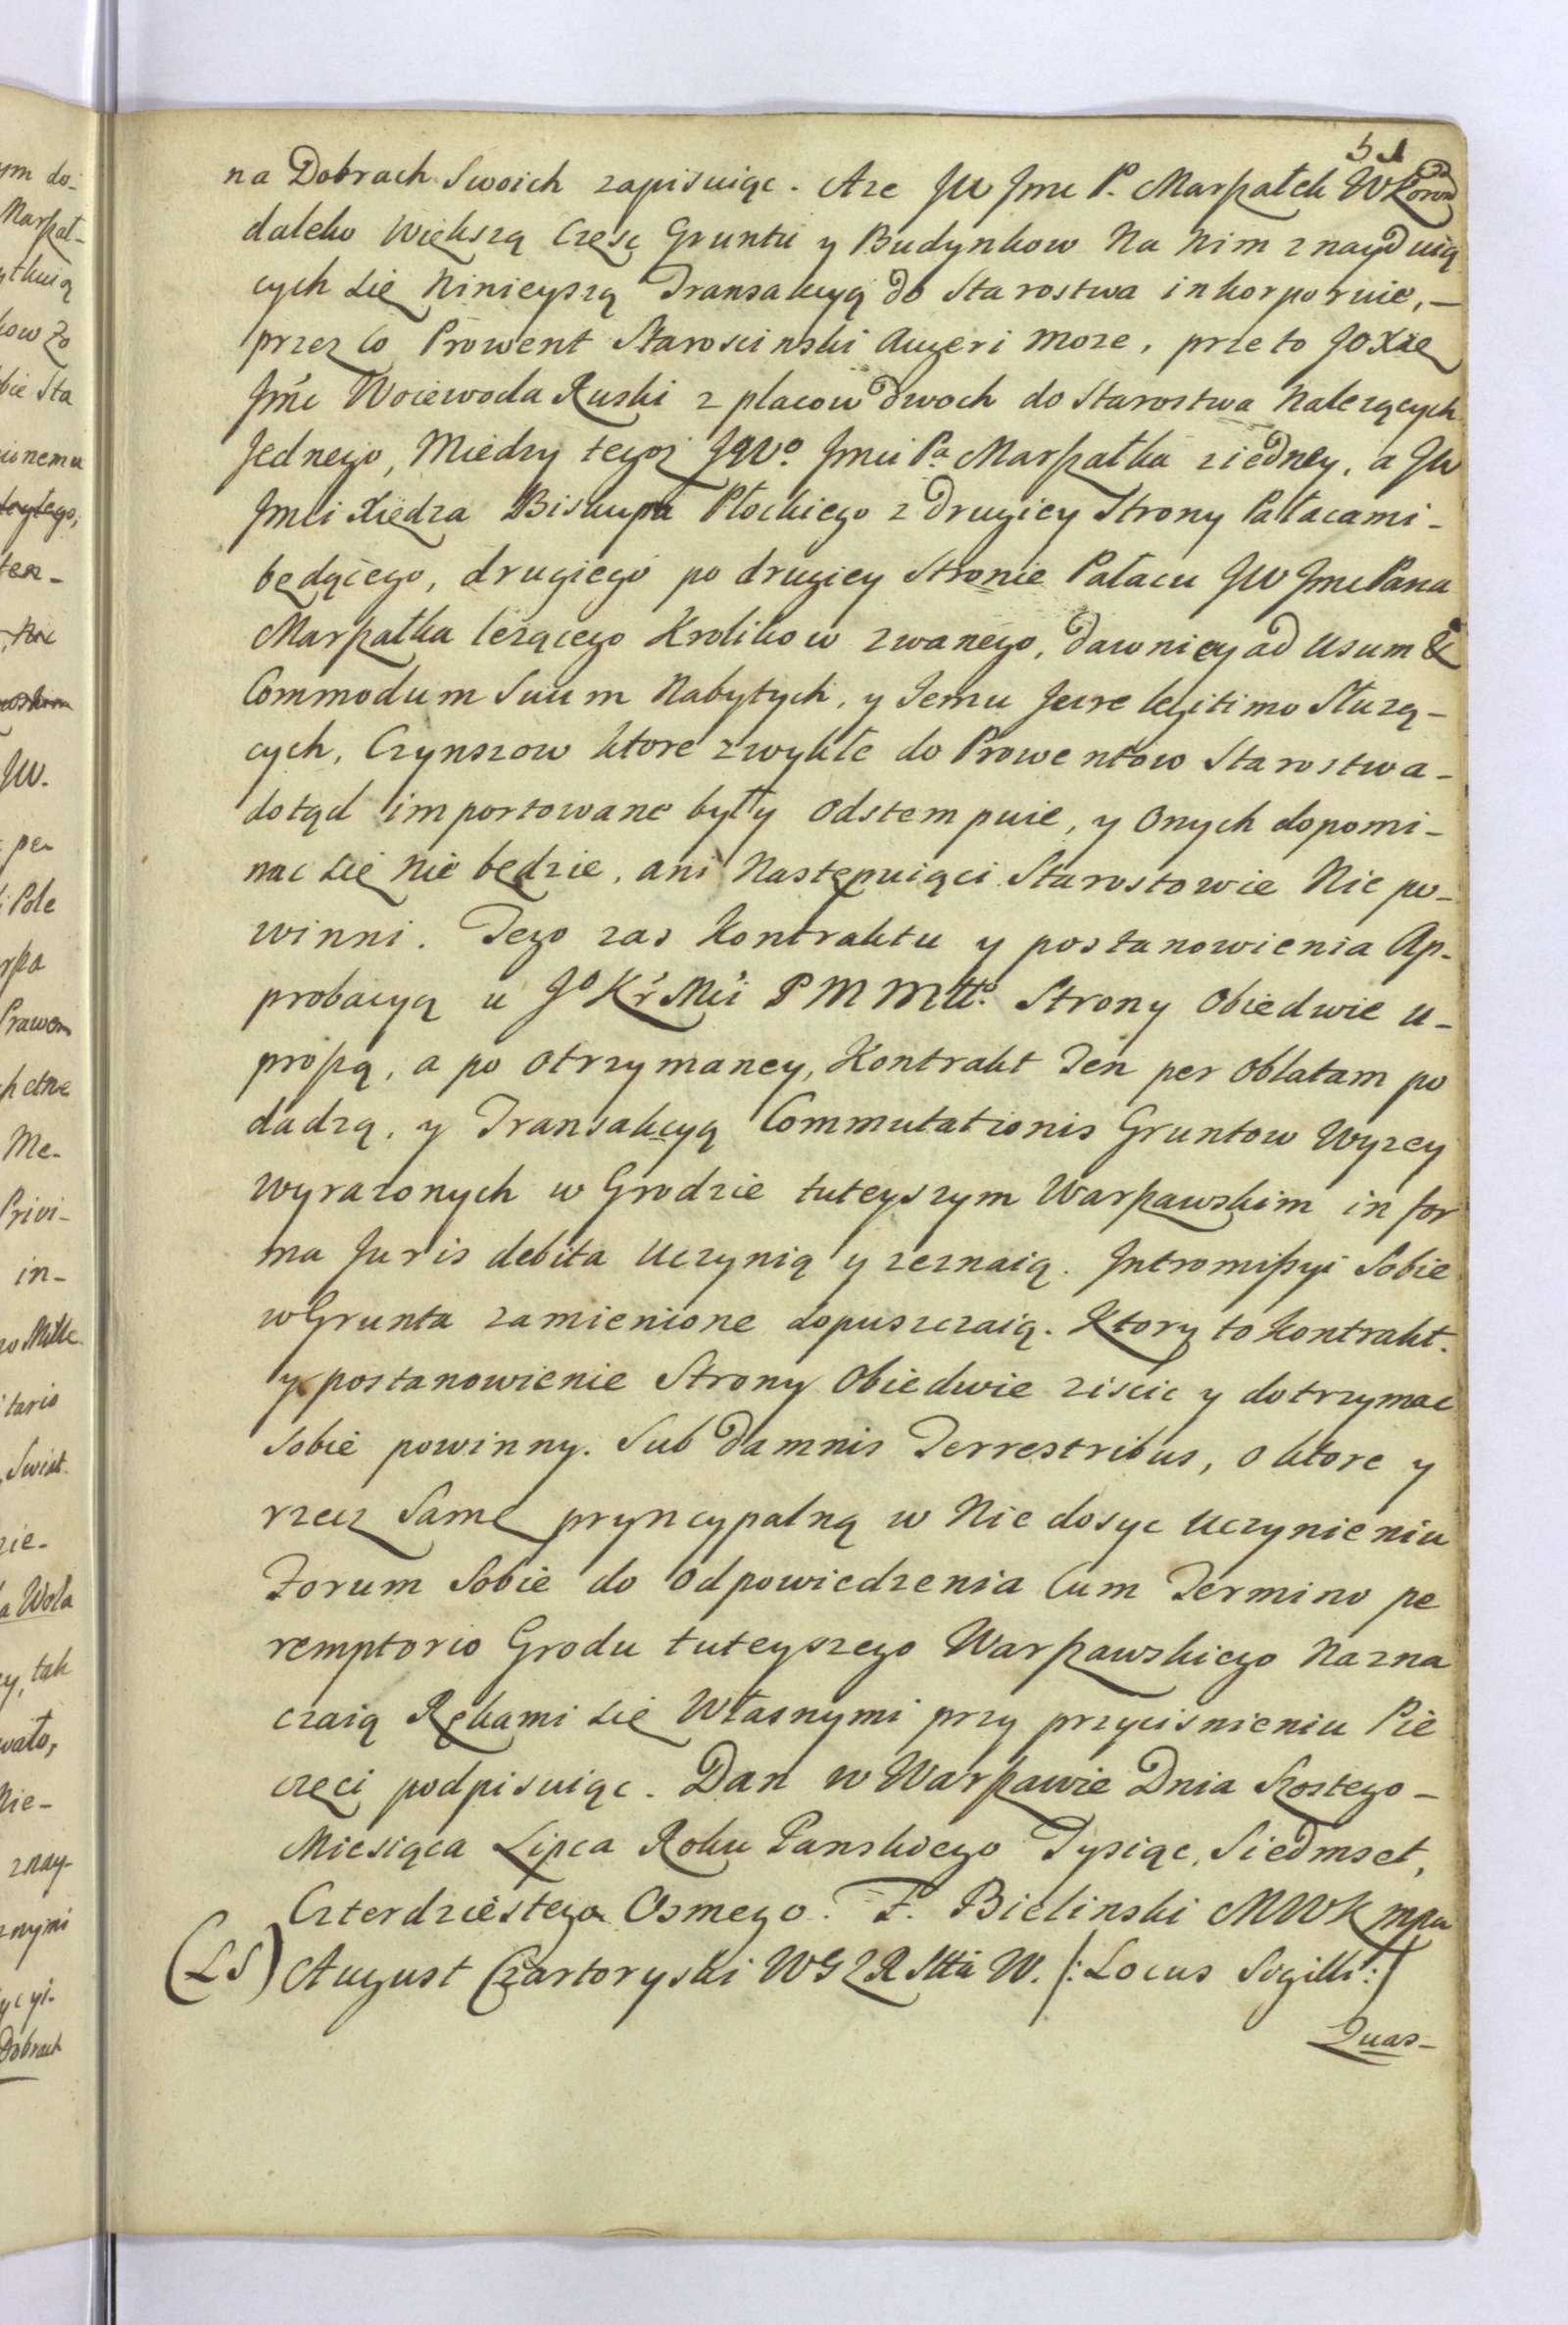 51
na Dobrach Swoich zapisuiąc. Aze JW Jmc P. Marszałek WKoron
daleko większą Częsc Gruntu y Budynkow Na Nim znayduią
cych się Ninieyszą Transakcyą do Starostwa inkorporuie,—
przez co Prowent Staroscinski Augeri moze, przeto JOXże
Jmć Woiewoda Ruski z placow dwoch do Starostwa Nalezących
Jednego, Miedzy tegoz JWo. Jmci Pa Marszałka ziedney, a JW
Jmci Xiędza Biskupa Płockiego z Drugiey Strony Pałacami-
będącego, drugiego po drugiey Stronie Pałacu JW Jmc Pana
Marszałka lezącego Krolikow zwanego, dawniey ad Usum &
Commodum Suum Nabytych, y Jemu Jure legitimo Słuzą-
cych, Czynszow ktore zwykłe do Prowentow Starostwa-
dotąd importowane były Odstempuie, y Onych dopomi-
nac się nie będzie, ani Następuiąci Starostowie Nie po-
winni. Tego zas Kontraktu y postanowienia Ap-
probacyą u Jo Kr Mci P M Mttø. Strony Obiedwie u-
proszą, a po otrzymaney, Kontrakt Ten per Oblatam po
dadzą, y Transakcyą Commutationis Gruntow Wyzey
wyrazonych w Grodzie tuteyszym Warszawskim in for
ma Juris debita Uczynią y zeznaią. Intromissyi Sobie
w Grunta zamienione dopuszczaią. Ktory to Kontrakt.
y postanowienie Strony Obiedwie ziscic y dotrzymac
sobie powinny. Sub Damnis Terrestribus, o ktore y
rzecz Same pryncypalną w Nie dosyc Uczynieniu
Forum Sobie do Odpowiedzenia Cum Termino pe
remptorio Grodu tuteyszego Warszawskiego Nazna
czaią Rękami się Własnymi przy przycisnieniu Pie
częci podpisuiąc. Dan w Warszawie Dnia Szostego-
Miesiąca Lipca Roku Panskiego Tysiąc, Siedmset,
Czterdziestego Osmego. F. Bielinski MWK mpa
(LS) August Czartoryski WGZR Stta W. /:Locus Sigilli:/
Quas-